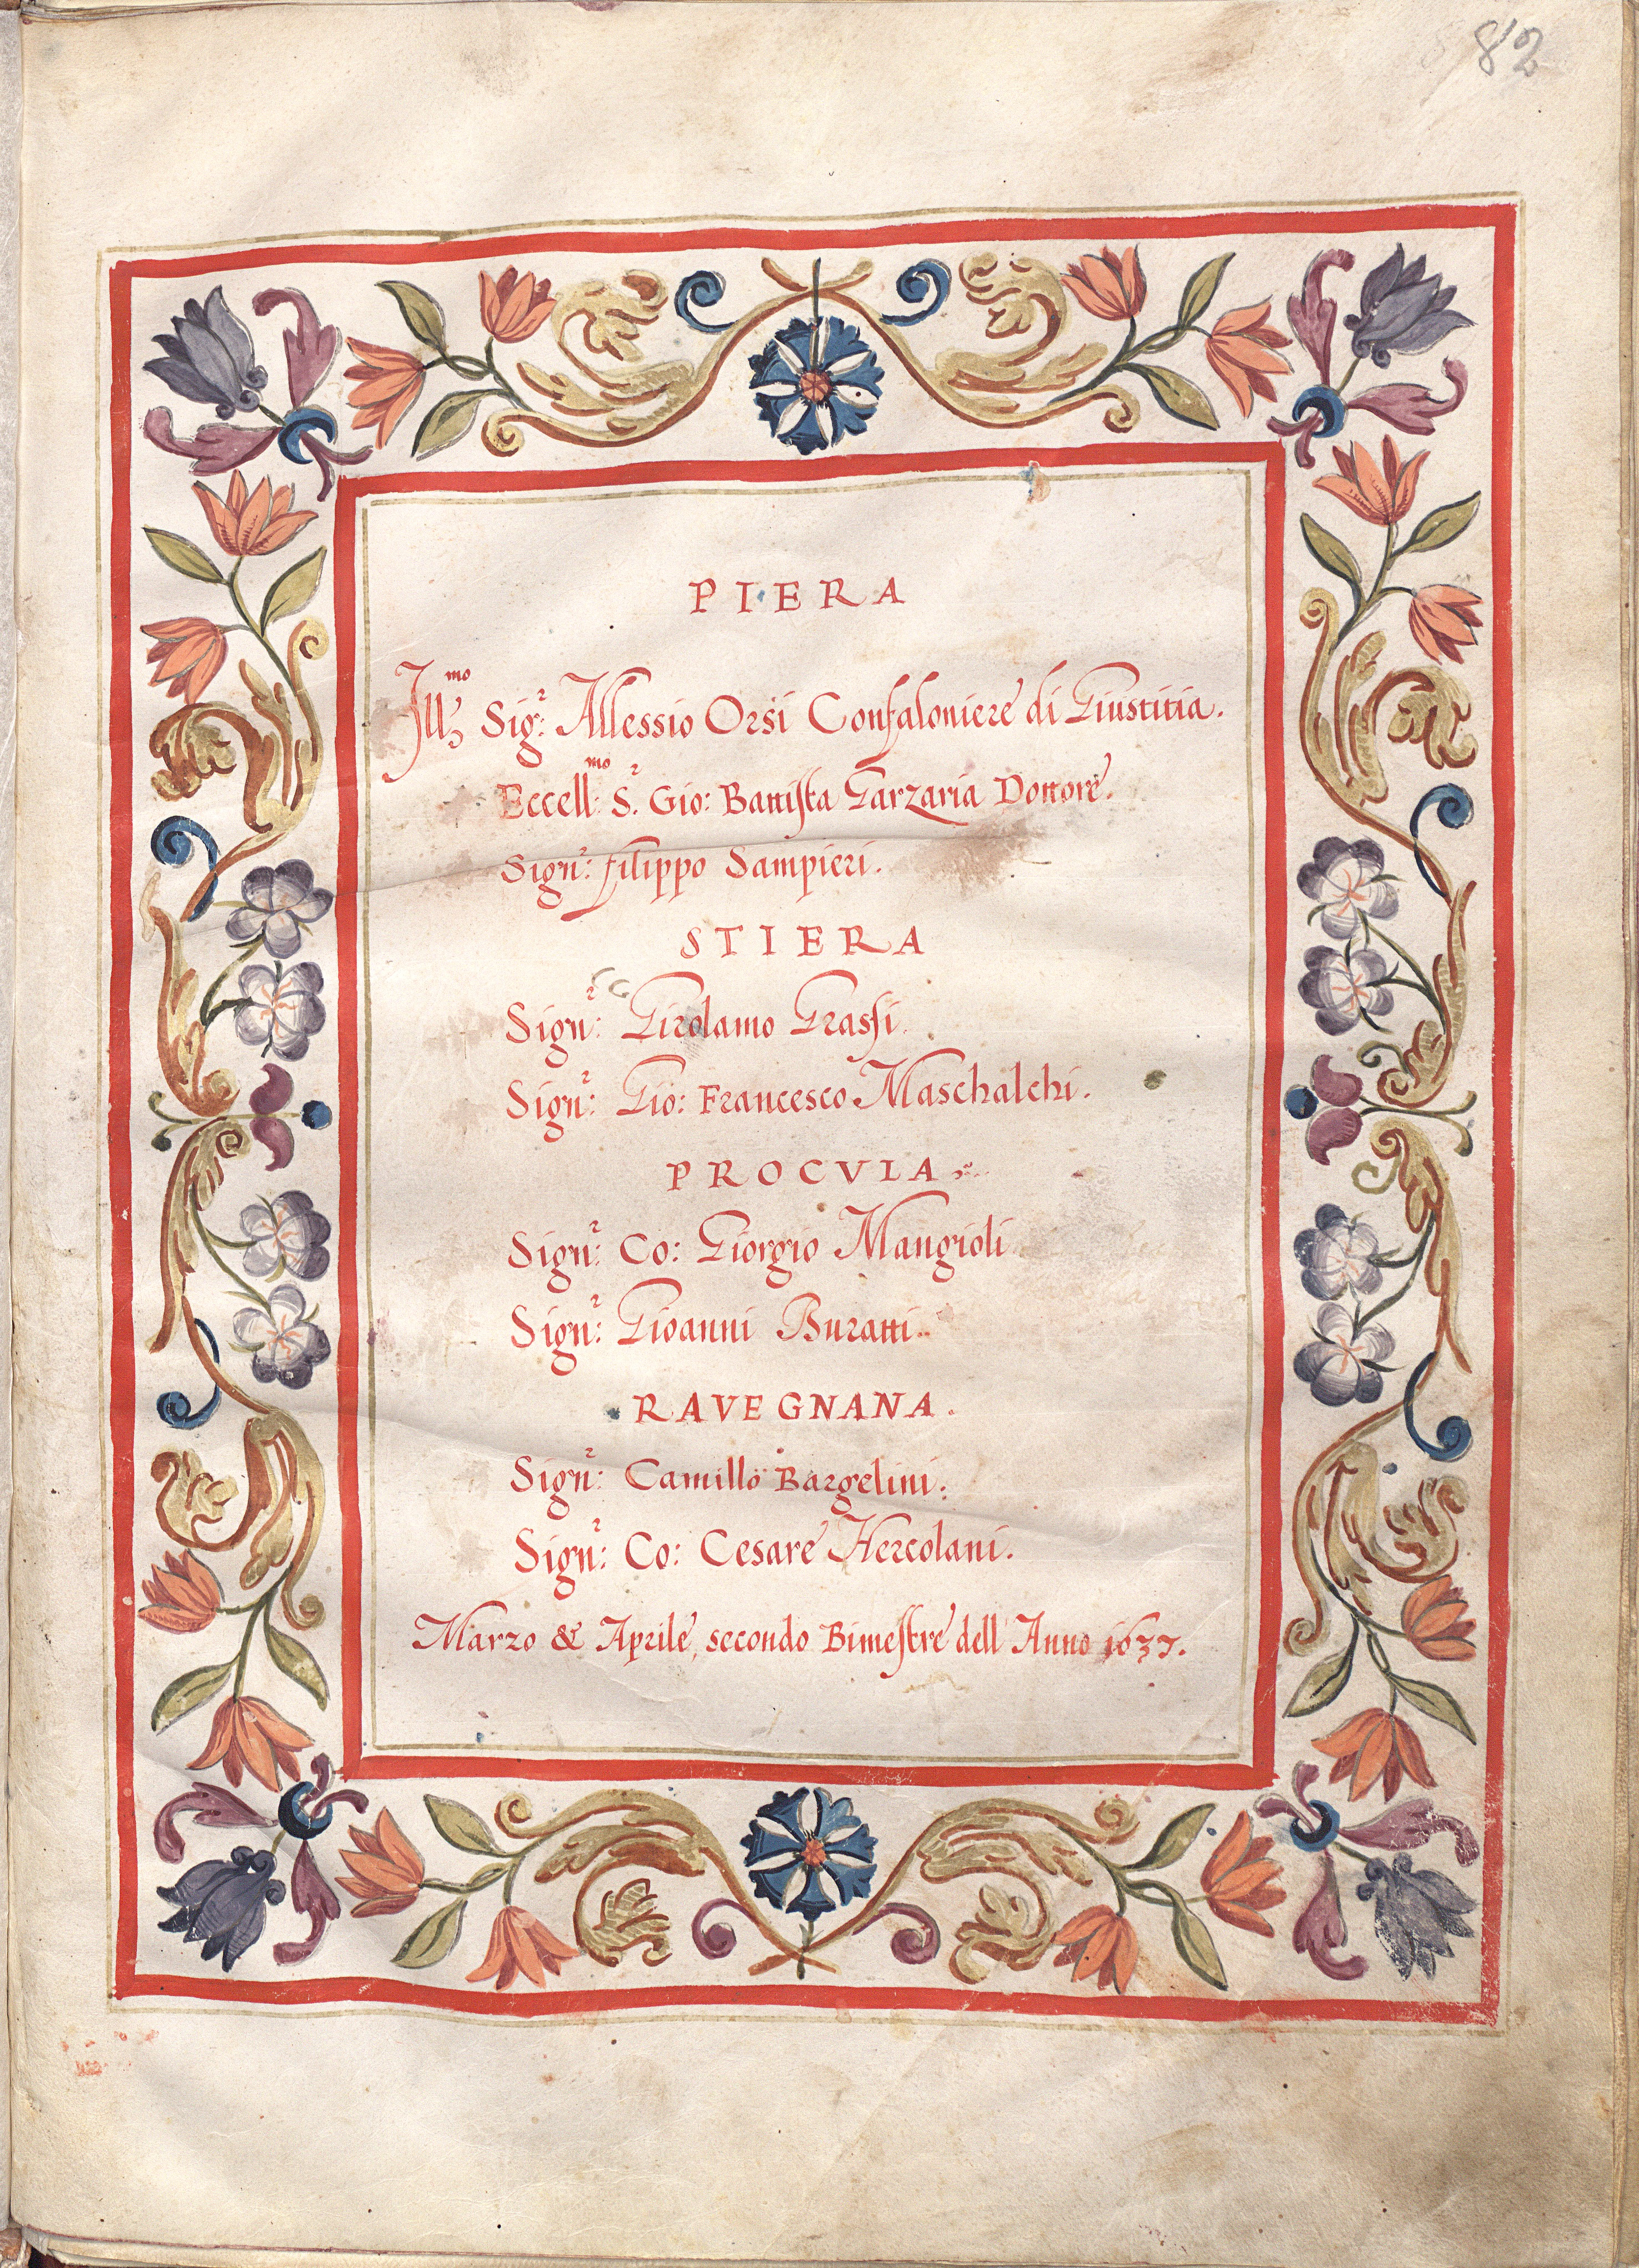 82
PIERA
Ill.mo Sig.r Allessio Orsi Confaloniere di Giustitia.
Eccell.mo S.r Gio: Battista Garzaria Dottore.
Sign.r: filippo Sampieri.
STIERA
Sign.r: Girolamo Grassi.
Sign.r: Gio: Francesco Maschalchi.
PROCVLA
Sign.r: Co: Giorgio Mangioli
Sign.r: Gioanni Buratti.
RAVEGNANA.
Sign.r: Camillo Bargelini:
Sign.r: Co: Cesare Hercolani.
Marzo & Aprile, secondo Bimestre dell' Anno 1637.